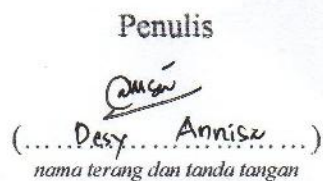 Penulis
(.....Desy.......Annisa.......)
nama terang dan tanda tangan